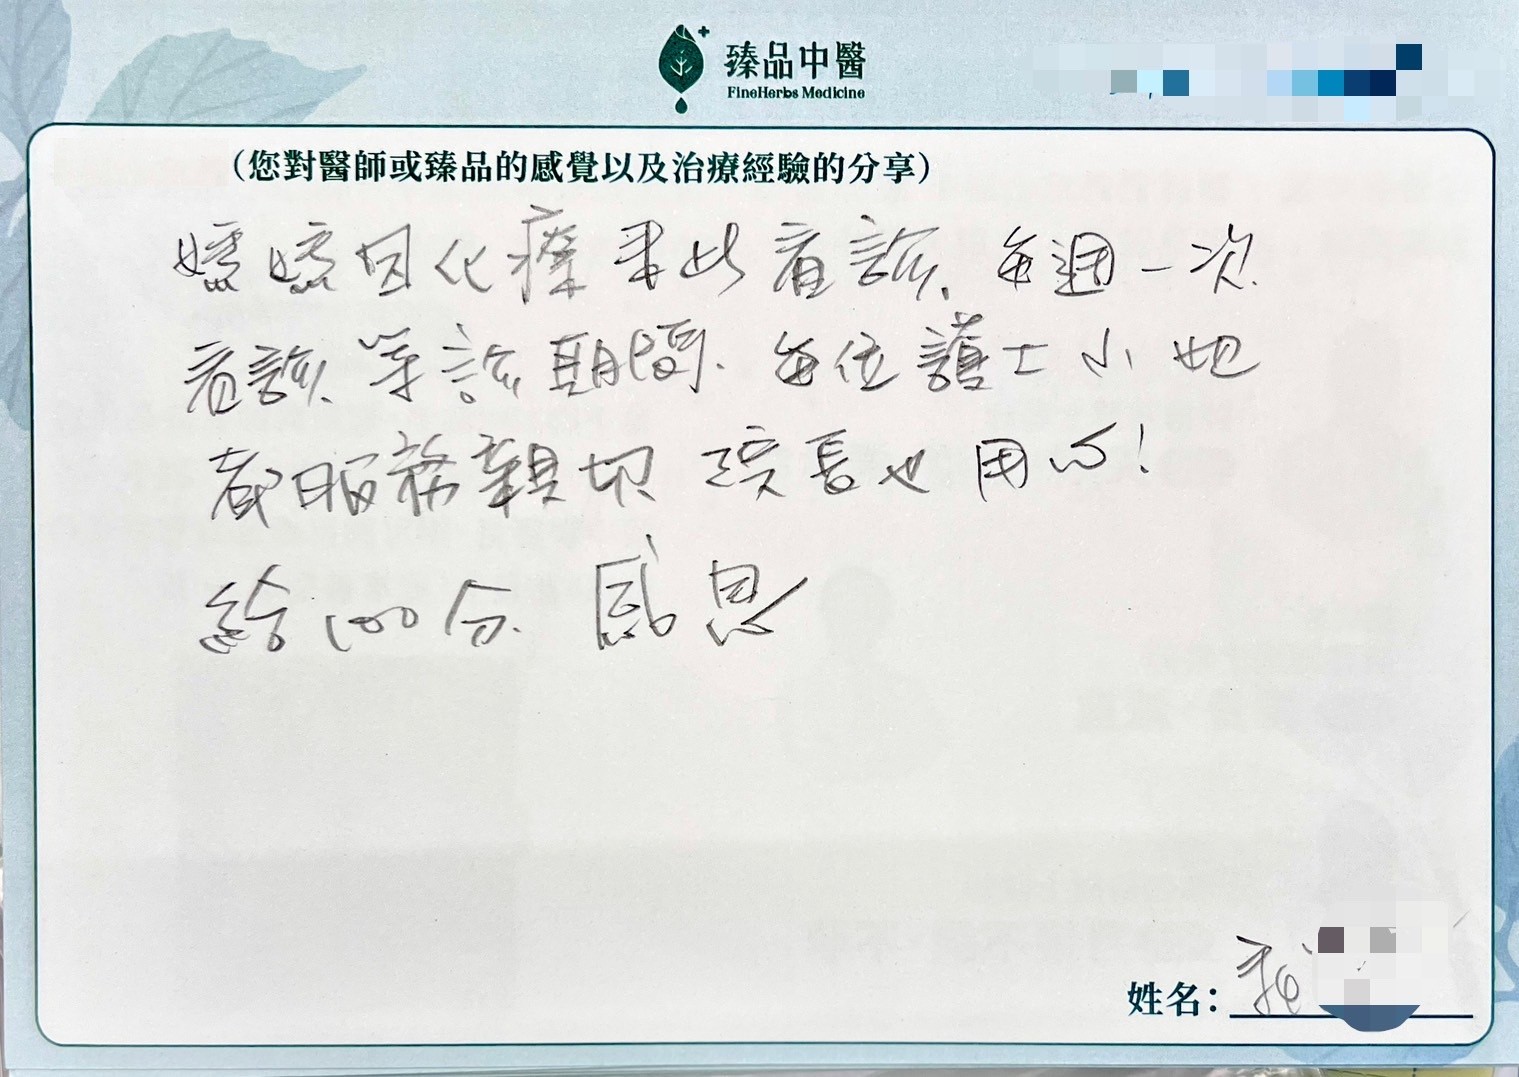 臻品中醫
FineHerbs Medicine
(您對醫師或臻品的感覺以及治療經驗的分享)
嬿嬿因化療來此看診、每週一次
看診、等診期間、每位護士小姐
都服務親切 院長也用心!
給100分、感恩
姓名: